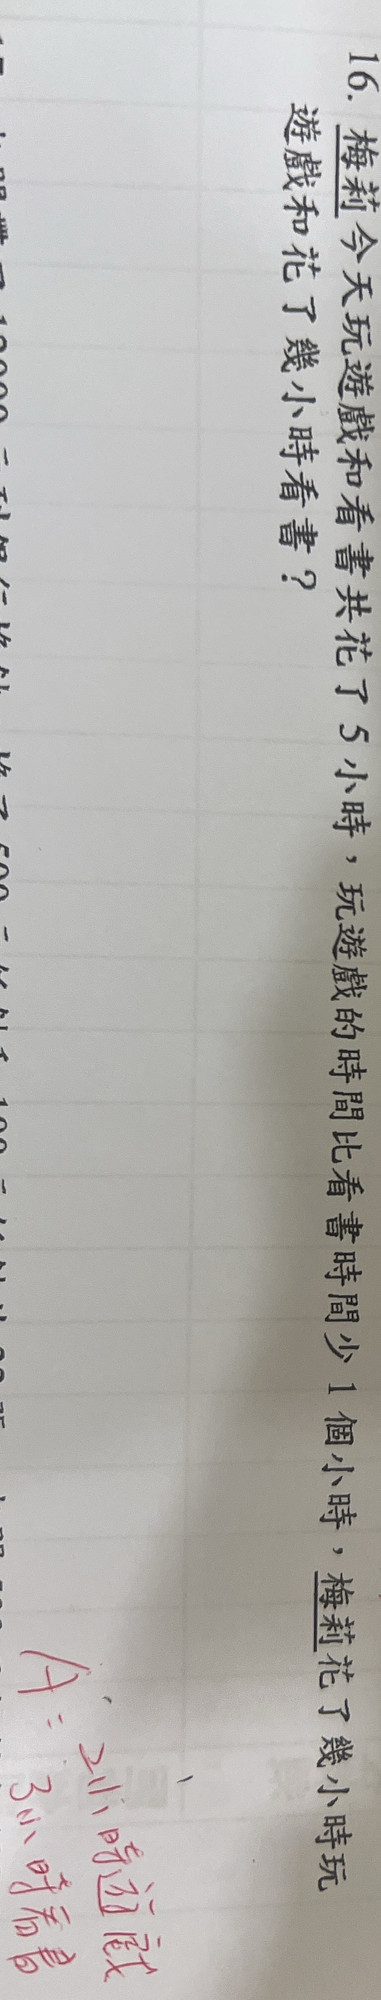 16. 梅莉今天玩遊戲和看書共花了5小時，玩遊戲的時間比看書時間少1個小時，梅莉花了幾小時玩
遊戲和花了幾小時看書？
A: 2小時遊戲
3小時看書